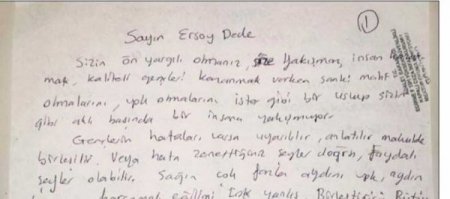 1
Sayın Ersoy Dede
Sizin ön yargılı olmanız, size yakışmaz, insan
mak, kaliteli gençleri kazanmak varken sanki mahf
olmalarını, yok olmalarını ister gibi bir uslup sizin
gibi aklı başında bir insana yakışmıyor.
Gençlerin hataları varsa uyarılır, anlatılır makulde
birleşilir. Veya hata zannettiğiniz şeyler doğru, faydalı
şeyler olabilir. Sağın çok fazla aydını yok, aydın
yanlış